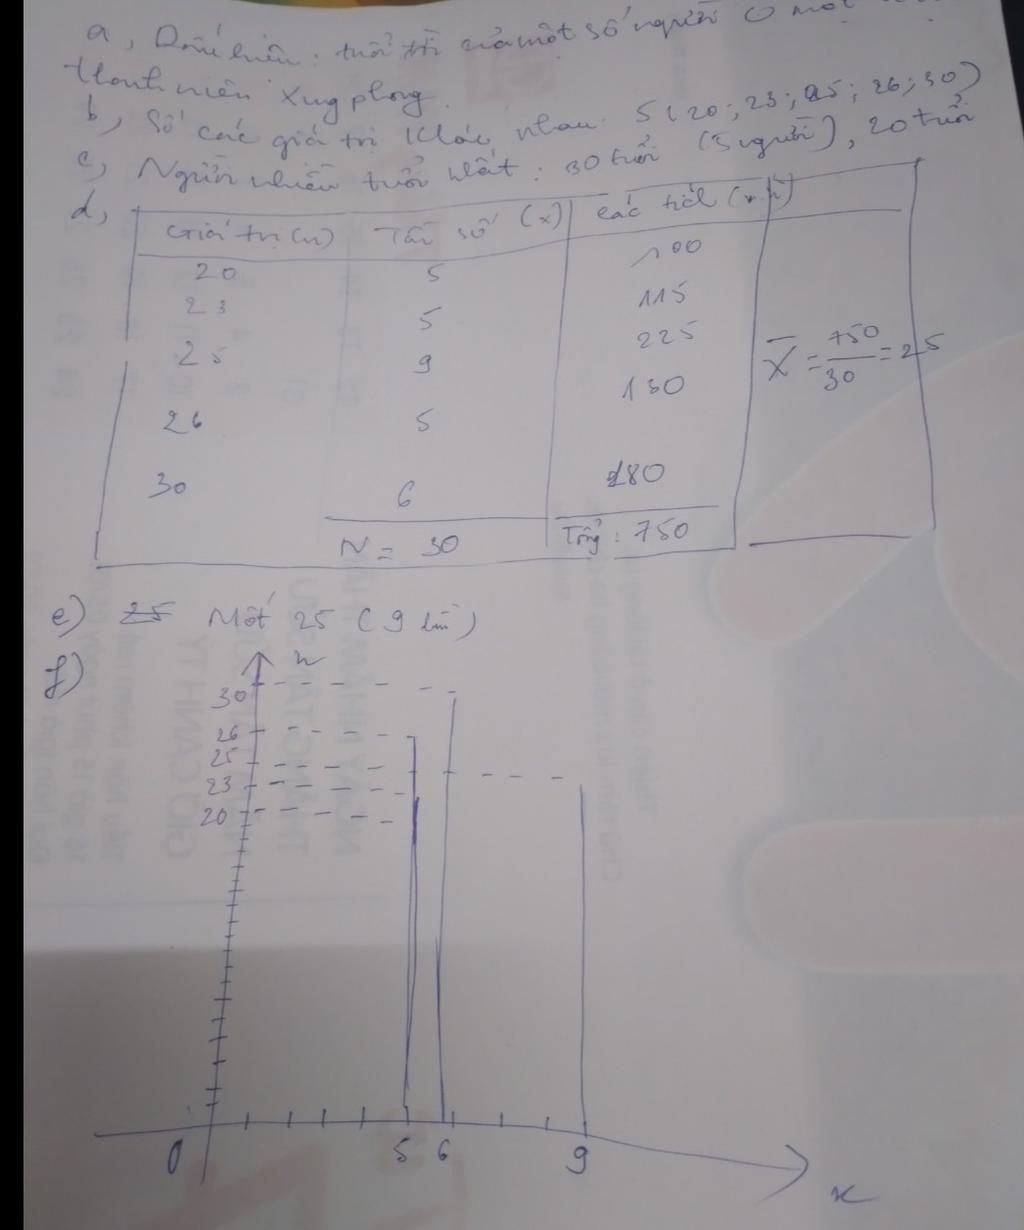 a, Dấu hiệu: tuổi của một số người ở một
thanh niên xung phong.
b, Số các giá trị khác nhau: 5 (20; 23; 25; 26; 30)
c, Người nhiều tuổi nhất: 30 tuổi (5 người), 20 tuổi
d,
Giá trị (n) Tần số (x) Các tích (x.n)
20 5 100
23 5 115
25 9 225
26 5 130
30 6 180
N = 30 Tổng: 750
X̄ = 750/30 = 25
e) 25 Mốt 25 (9 lần)
f)
n
30
26
25
23
20
0 5 6 9
x